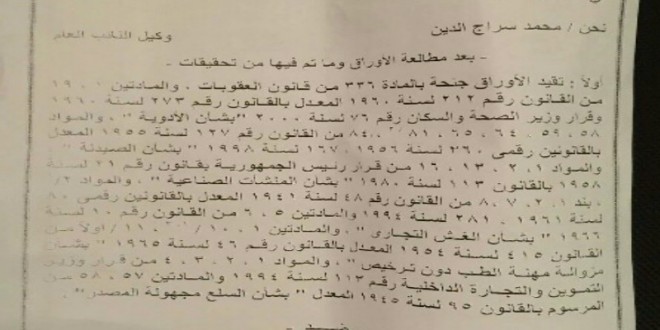 نحن / محمد سراج الدين وكيل النائب العام
- بعد مطالعة الأوراق وما تم فيها من تحقيقات -
أولاً : تقيد الأوراق جنحة بالمادة ٣٣٦ من قانون العقوبات . والمادتين ١ ، ٩
من القانون رقم ٢١٢ لسنة ١٩٦٠ المعدل بالقانون رقم ٢٧٣ لسنة ١٩٦٠
وقرار وزير الصحة والسكان رقم ٧٦ لسنة ٢٠٠٠ " بشأن الأدوية " ، والمواد
٥٨ ، ٥٩ ، ٦٤ ، ٦٥ ، ٨١ ، ٨٤ من القانون رقم ١٢٧ لسنة ١٩٥٥ المعدل
بالقانونين رقمى ٢٦٠ لسنة ١٩٥٦ ، ١٦٧ لسنة ١٩٩٨ " بشأن الصيدلة "
والمواد ١ ، ٢ ، ١٣ ، ١٦ من قرار رئيس الجمهورية بقانون رقم ٢١ لسنة
١٩٥٨ بالقانون ١١٣ لسنة ١٩٨٠ " بشأن المنشآت الصناعية " ، والمواد ٢/
بند ١ ، ٢ ، ٧ ، ٨ من القانون رقم ٤٨ لسنة ١٩٤١ المعدل بالقانونين رقمى ٨٠
لسنة ١٩٦١ ، ٢٨١ لسنة ١٩٩٤ والمادتين ٥ ، ٦ من القانون رقم ١٠ لسنة
١٩٦٦ " بشأن الغش التجارى " ، والمادتين ١ ، ١٠ ، ١١ / أولاً من
القانون ٤١٥ لسنة ١٩٥٤ المعدل بالقانون رقم ٤٦ لسنة ١٩٦٥ " بشأن
مزوالة مهنة الطب دون ترخيص " ، والمواد ١ ، ٢ ، ٣ ، ٤ من قرار وزير
التموين والتجارة الداخلية رقم ١١٣ لسنة ١٩٩٤ والمادتين ٥٧ ، ٥٨ من
المرسوم بالقانون ٩٥ لسنة ١٩٤٥ المعدل " بشأن السلع مجهولة المصدر " .